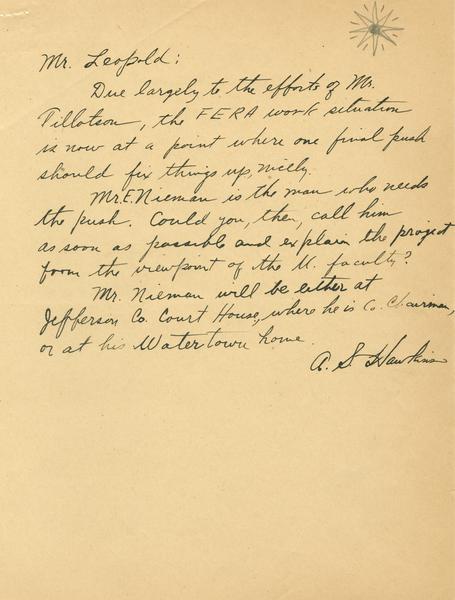 Mr. Leopold:
Due largely to the efforts of Mr.
Tillotson, the FERA work situation
is now at a point where one final push
should fix things up, nicely.
Mr. E. Nieman is the man who needs
the push. Could you, then, call him
as soon as possible and explain the project
from the viewpoint of the U. faculty?
Mr. Nieman will be either at
Jefferson Co. Court House, where he is Co. Chairman,
or at his Watertown home.
A. S. Hawkins